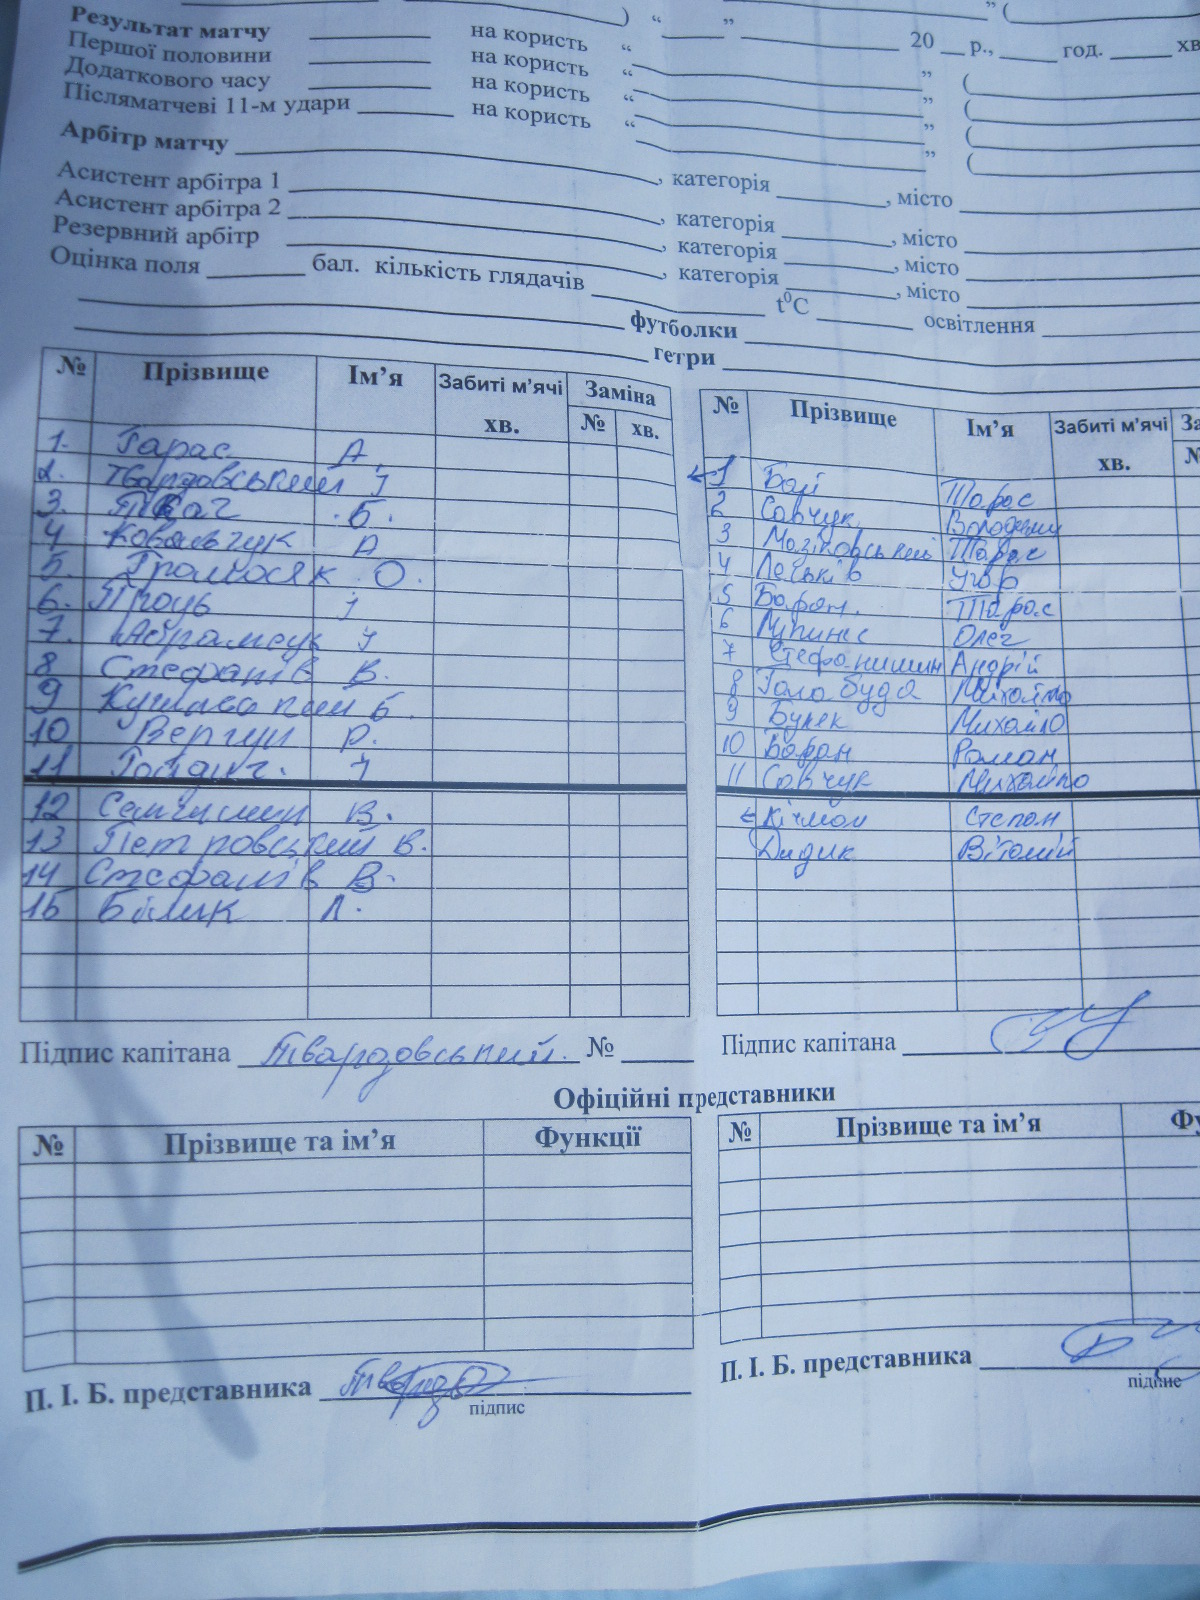 ) “ ” ” (
Результат матчу на користь “ ” 20 р., год. хв
Першої половини на користь “ ” (
Додаткового часу на користь “ ” (
Післяматчеві 11-м удари на користь “ ” (
Арбітр матчу , категорія , місто
Асистент арбітра 1 , категорія , місто
Асистент арбітра 2 , категорія , місто
Резервний арбітр , категорія , місто
Оцінка поля бал. кількість глядачів t⁰C освітлення
футболки
гетри
№ Прізвище Ім’я Забиті м’ячі хв. Заміна № хв.
1. Гарас А.
2. Твардовський І
3. Ткач Б.
4 Ковальчук А
5. Громосяк О.
6. Проць І
7. Абрамсук І
8 Стефанів В.
9 Б.
10 Вергун Р.
11
12 Семчишин В.
13 Петровський В.
14 Стефанів В.
15 Білик Л.
Підпис капітана Твардовський. №
№ Прізвище Ім’я Забиті м’ячі хв. За №
1 Бай Тарас
2 Савчук Володимир
3 Тарас
4 Леськів Ігор
5 Баран. Тарас
6 Олег
7 Стефанишин Андрій
8 Голобуда Михайло
9 Буняк Михайло
10 Баран Роман
11 Савчук Михайло
Кічмал Степан
Дидик Віталій
Підпис капітана
Офіційні представники
№ Прізвище та ім’я Функції
№ Прізвище та ім’я Фу
П. І. Б. представника
підпис
П. І. Б. представника
підпис